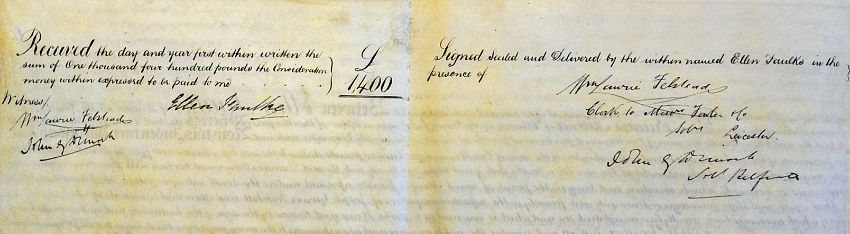 Received the day and year first within written the
sum of One thousand four hundred pounds the Consideration
money within expressed to be paid to me
£
1400
Witness
Wm Lawrie Felstead
John
Ellen Faulks
Signed Sealed and Delivered by the within named Ellen Faulks in the
presence of
Wm Lawrie Felstead
Clerk to Messrs Fowler & Co
Solrs Leicester.
John
Solr